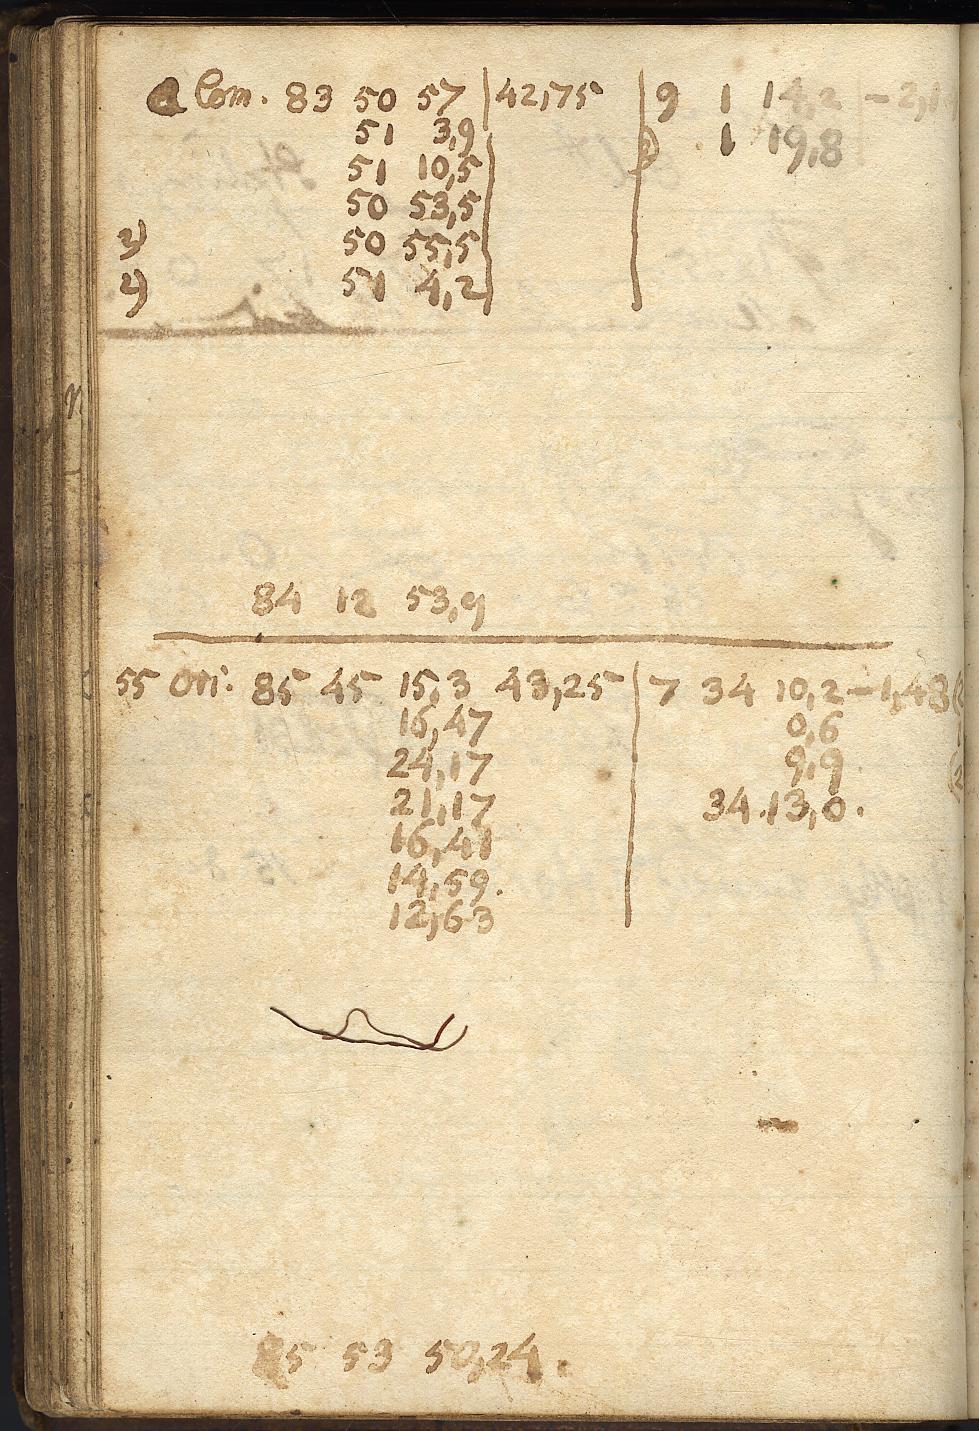 α Com. 83 50 57 | 42,75 | 9 1 14,2 - 2,1
51 3,9 1 19,8
51 10,5
50 53,5
2) 50 55,5
2) 51 4,2
84 12 53,9
55 Ori. 85 45 15,3 43,25 | 7 34 10,2 - 1,43
16,47 0,6
24,17 9,9
21,17 34.13,0.
16,41
14,59.
12,63
85 53 50,24.